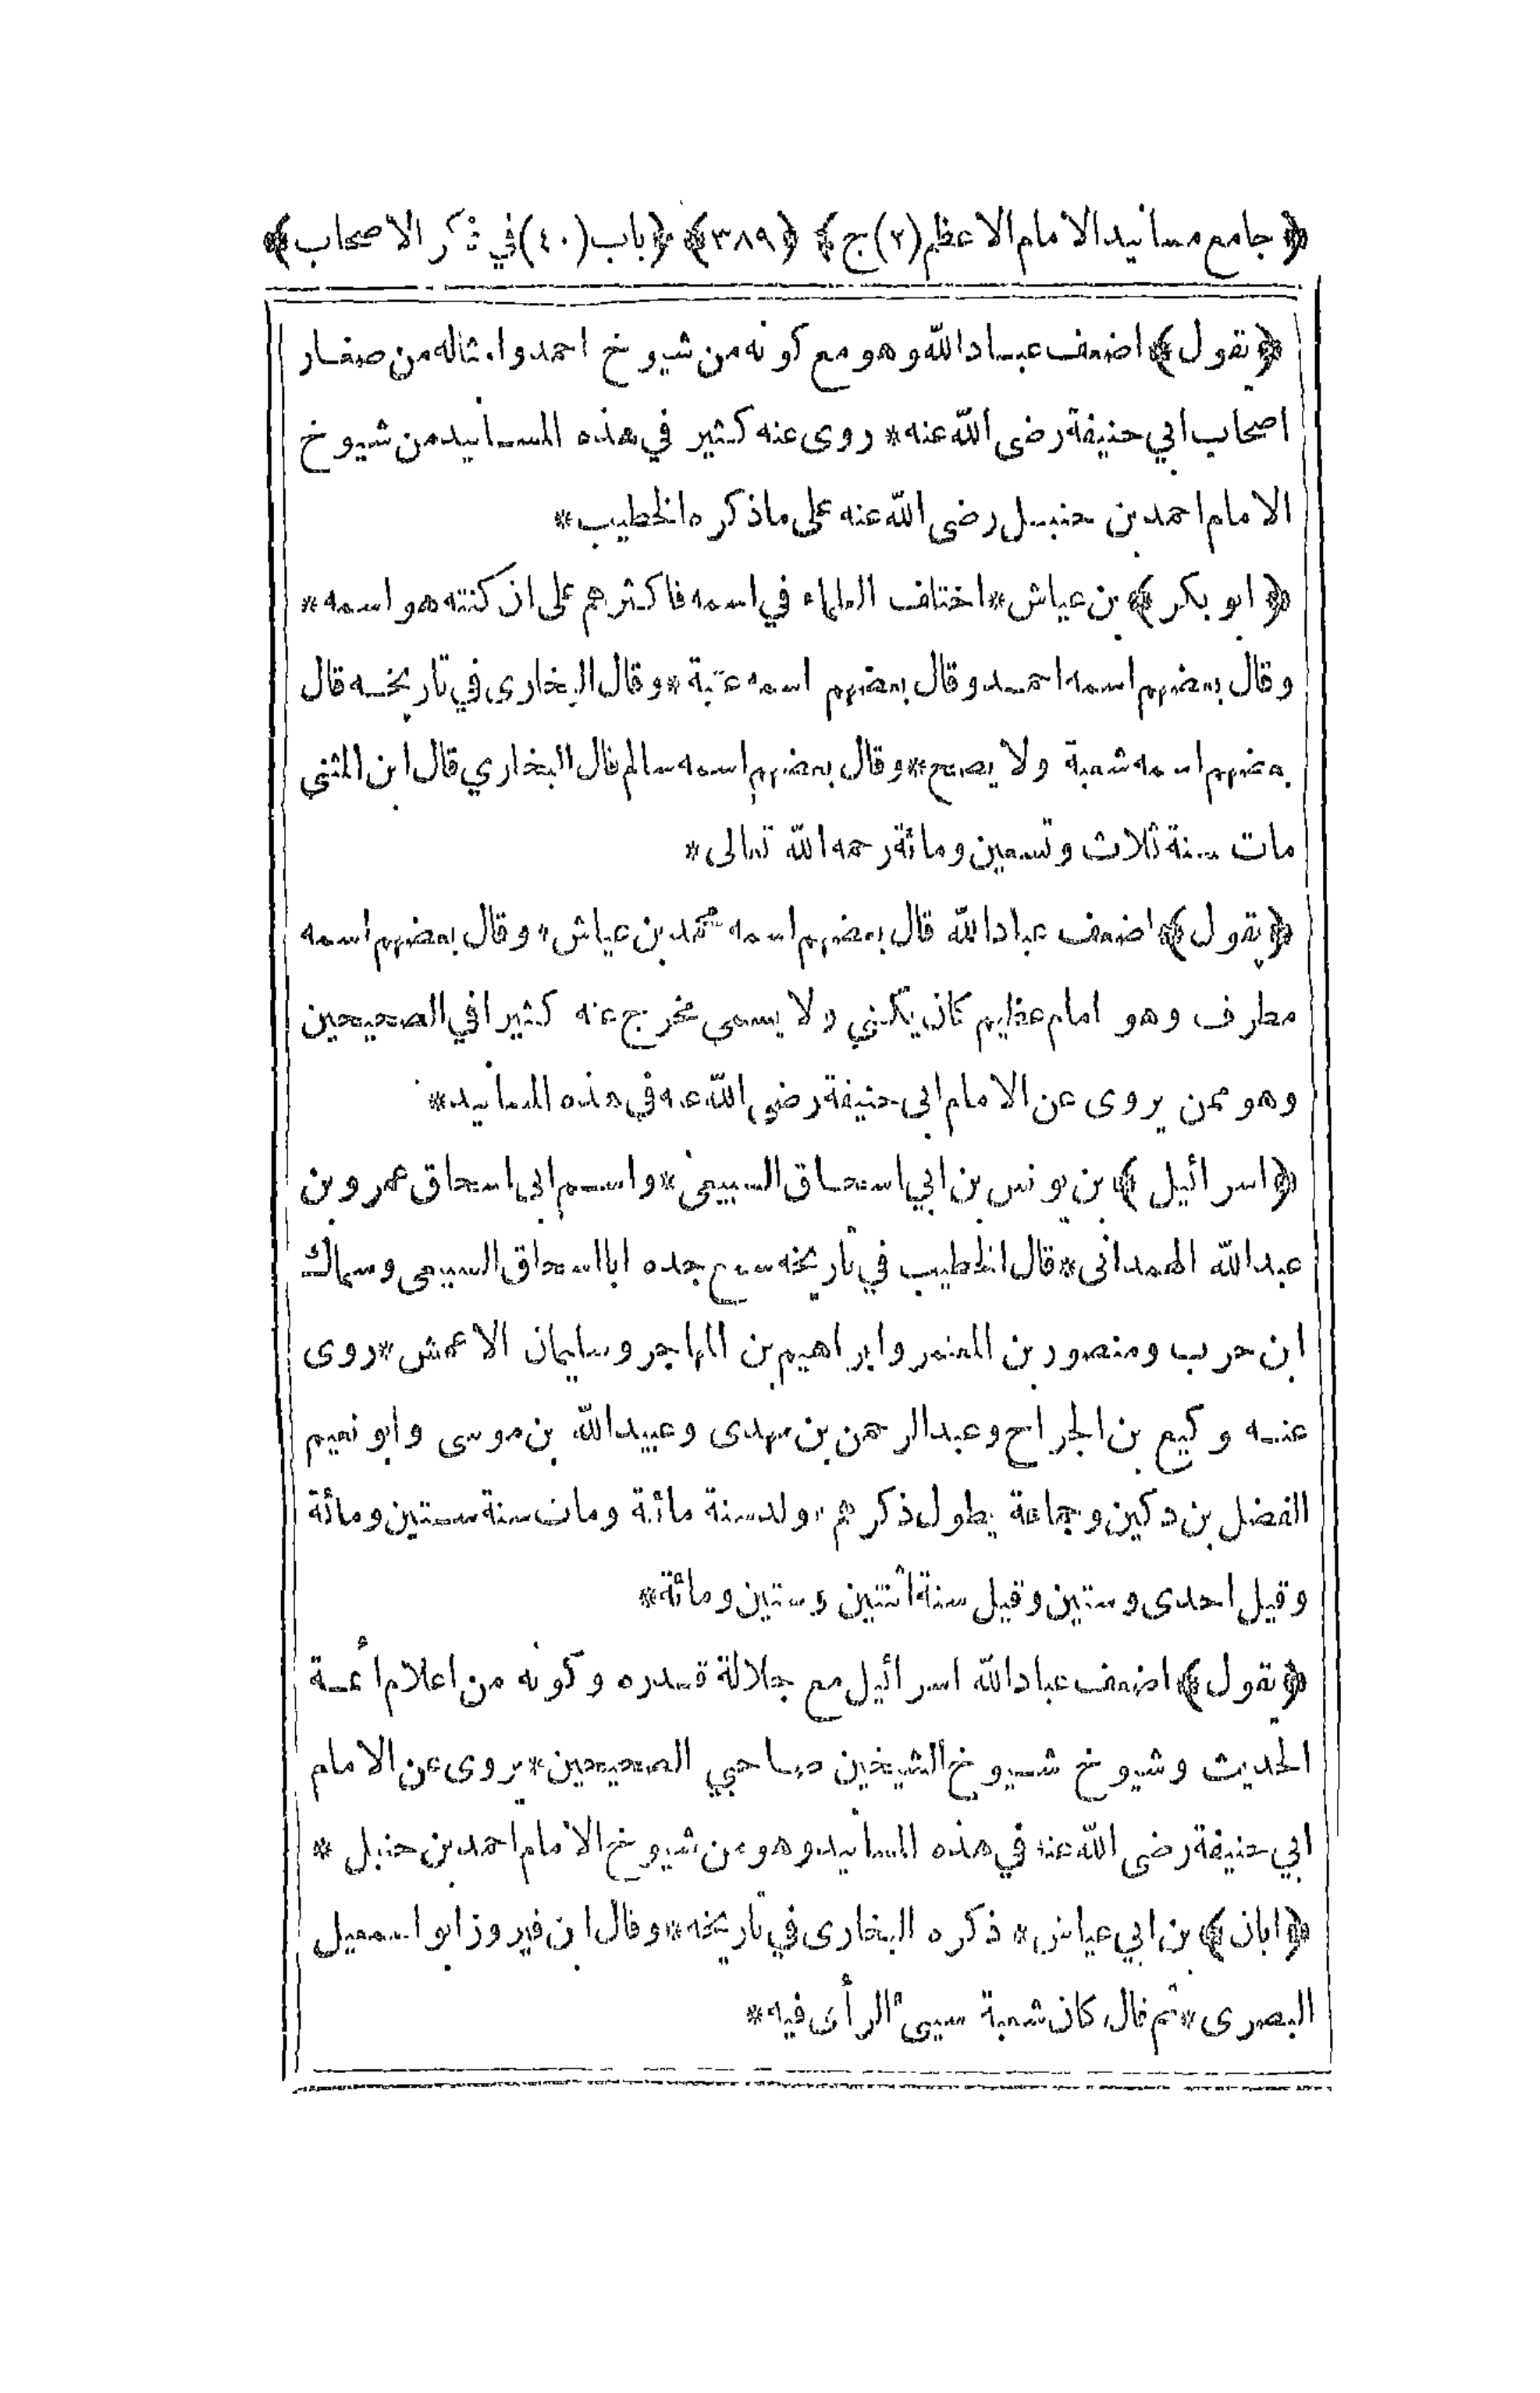 ﴿جامع مسانيد الامام الاعظم (٢) ج﴾ ﴿٣٨٩﴾ ﴿باب (٤٠) في ذكر الاصحاب﴾
﴿يقول﴾ اضعف عباد الله وهو مع كونه من شيوخ احمد وامثاله من صغار
اصحاب ابي حنيفة رضى الله عنه * روى عنه كثير في هذه المسانيد من شيوخ
الامام احمد بن حنبل رضى الله عنه على ماذكره الخطيب *
﴿ابو بكر﴾ بن عياش * اختلف العلماء في اسمه فاكثرهم على ان كنته هو اسمه *
وقال بعضهم اسمه احمد وقال بعضهم اسمه عتبة * وقال البخارى في تاريخه قال
بعضهم اسمه شعبة ولا يصح * وقال بعضهم اسمه سالم قال البخاري قال ابن المثنى
مات سنة ثلاث وتسعين ومائة رحمه الله تعالى *
﴿يقول﴾ اضعف عباد الله قال بعضهم اسمه محمد بن عياش * وقال بعضهم اسمه
مطرف وهو امام عظيم كان يكنى ولا يسمى مخرج عنه كثيرا في الصحيحين
وهو ممن يروى عن الامام ابى حنيفة رضى الله عنه في هذه المسانيد *
﴿اسرائيل﴾ بن يونس بن ابي اسحاق السبيعى * واسم ابى اسحاق عمرو بن
عبد الله الهمدانى * قال الخطيب في تاريخه سمع جده ابا اسحاق السبيعى وسماك
ابن حرب ومنصور بن المعتمر وابراهيم بن المهاجر وسليمان الاعمش * روى
عنه وكيع بن الجراح وعبد الرحمن بن مهدى وعبيد الله بن موسى وابو نعيم
الفضل بن دكين وجماعة يطول ذكرهم * ولد سنة مائة ومات سنة ستين ومائة
وقيل احدى وستين وقيل سنة اثنتين وستين ومائة *
﴿يقول﴾ اضعف عباد الله اسرائيل مع جلالة قدره وكونه من اعلام أئمة
الحديث وشيوخ شيوخ الشيخين صاحبي الصحيحين * يروى عن الامام
ابي حنيفة رضى الله عنه في هذه المسانيد وهو من شيوخ الامام احمد بن حنبل *
﴿ابان﴾ بن ابي عياش * ذكره البخارى في تاريخه * وقال ابن فيروز ابو اسمعيل
البصرى * ثم قال كان شعبة سيئ الرأى فيه *